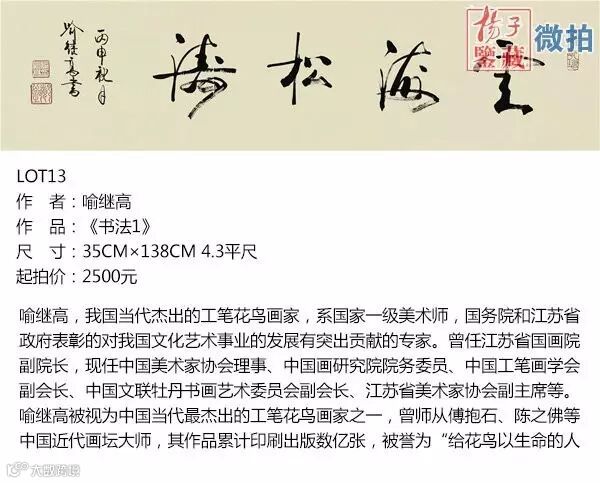 雲海松濤
丙申秋月
喻继高書
揚子
鑒藏
微拍
LOT13
作 者：喻继高
作 品：《书法1》
尺 寸：35CM×138CM 4.3平尺
起拍价：2500元
喻继高，我国当代杰出的工笔花鸟画家，系国家一级美术师，国务院和江苏省
政府表彰的对我国文化艺术事业的发展有突出贡献的专家。曾任江苏省国画院
副院长，现任中国美术家协会理事、中国画研究院院务委员、中国工笔画学会
副会长、中国文联牡丹书画艺术委员会副会长、江苏省美术家协会副主席等。
喻继高被视为中国当代最杰出的工笔花鸟画家之一，曾师从傅抱石、陈之佛等
中国近代画坛大师，其作品累计印刷出版数亿张，被誉为“给花鸟以生命的人
大欧跨境